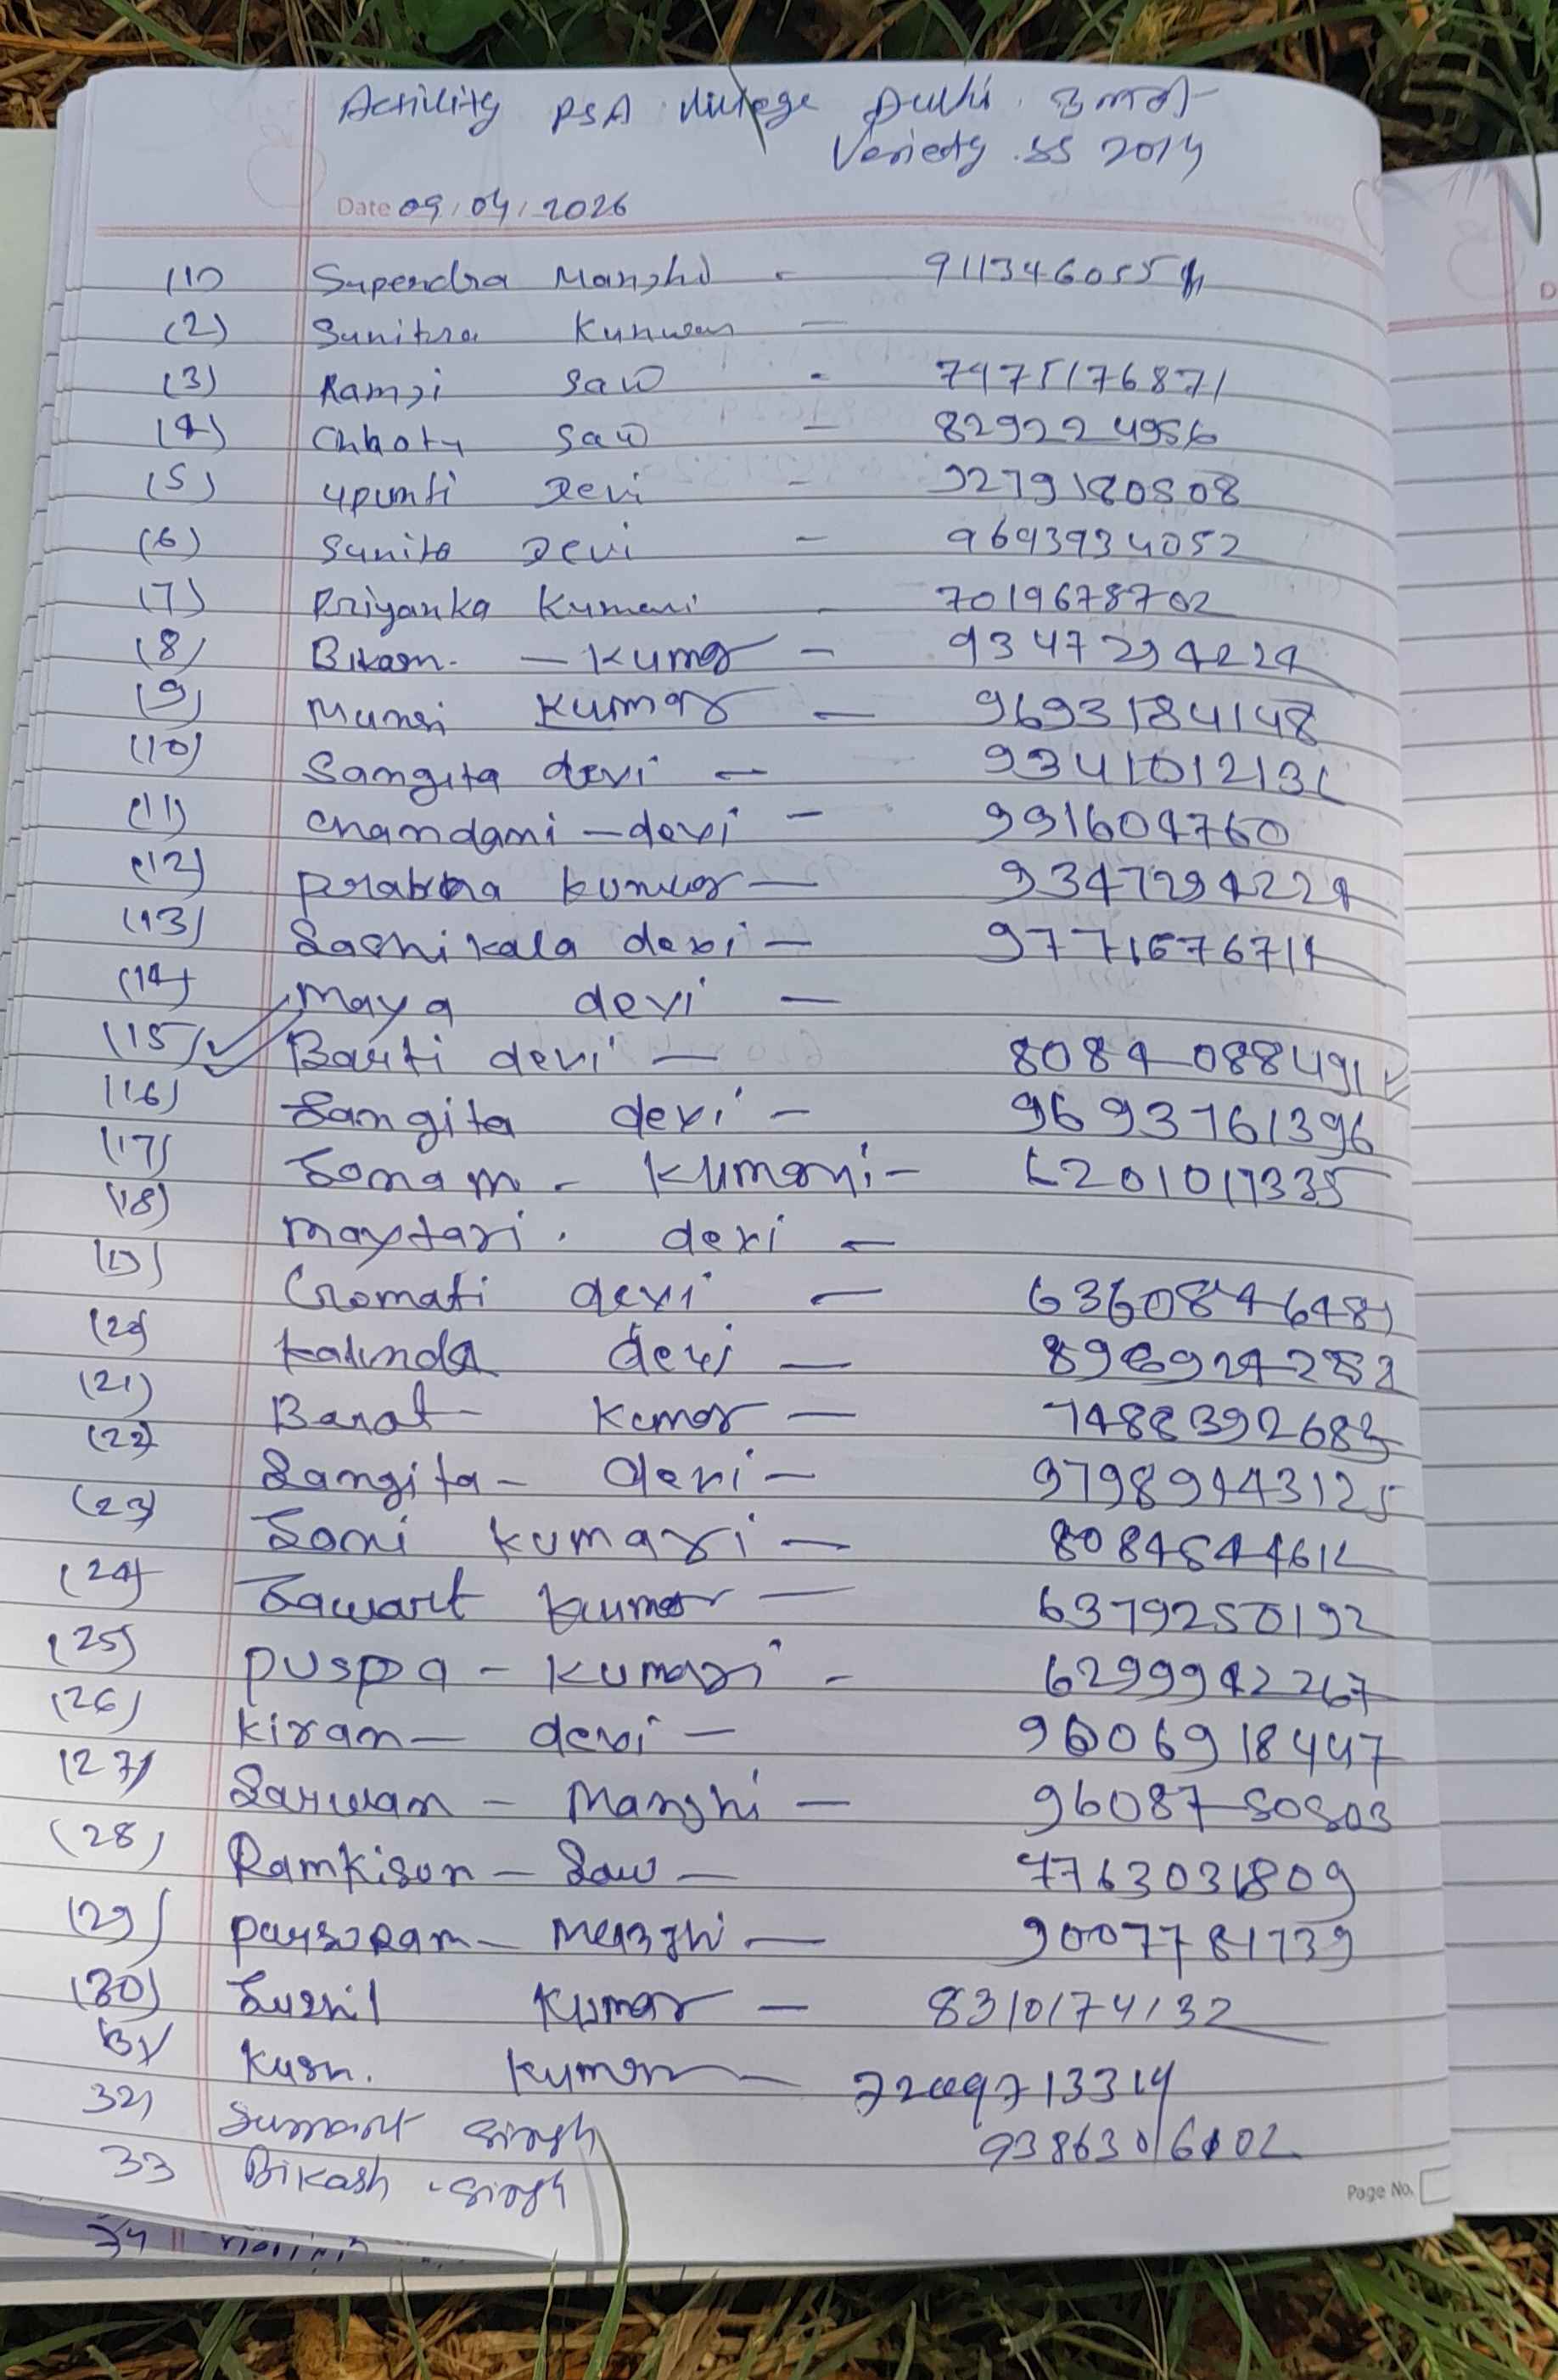 Activity PSA village Dulhi
Variety SS 2014
Date 09/04/2026
(1) Supendra Manjhi - 911346055
(2) Sunitra Kunwar -
(3) Ramji Saw - 7475176871
(4) Chhotu Saw - 8292224956
(5) Devi - 9279180808
(6) Sunita Devi - 9693934052
(7) Priyanka Kumari - 7019678702
(8) Bikash - Kumar - 9347294224
(9) Kumar - 9693184148
(10) Sangita devi - 9341012131
(11) chandani - devi - 991604760
(12) kunwar - 9347294224
(13) Sashikala devi -
(14) maya devi -
(15) Barti devi - 8084088491
(16) Sangita devi - 9693761396
(17) Sonam - Kumari - 6201017335
(18) devi -
(19) devi - 6360846481
(20) devi -
(21) Barat Kumar - 7488392683
(22) Sangita - devi - 97989443125
(23) Soni kumari -
(24) kumar - 6379250192
(25) puspa - kumari - 6299942267
(26) kiran - devi - 9606918447
(27) Sarwan - Manjhi - 9608780803
(28) Ramkison - Saw - 7763031809
(29) parsoram - Manjhi - 9007781739
(30) Sushil Kumar - 8310174132
(31) Kush. Kumar -
32) Sumant Singh
33 Bikash Singh
Page No.
34